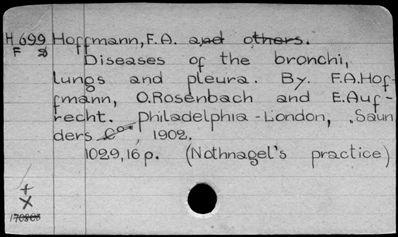 H 699 Hoffmann, F.A. and others.
F
Diseases of the bronchi,
lungs and pleura. By. F.A.Hof-
fmann, O.Rosenbach and E.Auf-
recht. Philadelphia - London, Saun
ders Co., 1902.
1029,16 p. (Nothnagel's practice)
+
X
170808